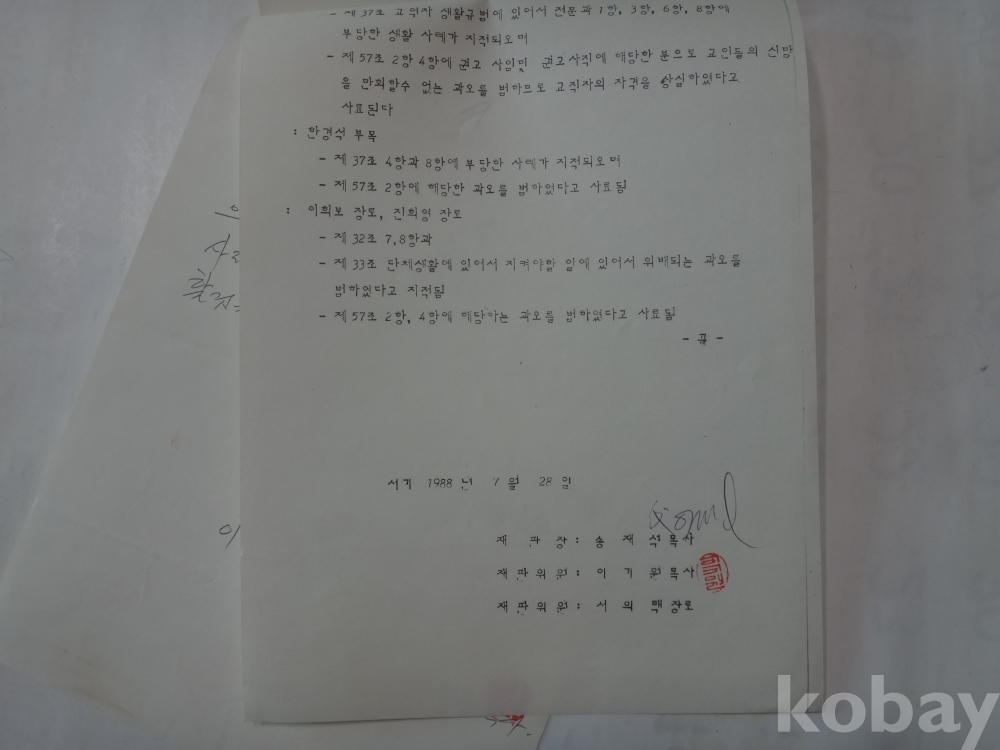 - 제 37조 교역자 생활규범에 있어서 전문과 1항, 3항, 6항, 8항에
부당한 생활 사례가 지적되오며
- 제 57조 2항 4항에 권고 사임및 권고사직에 해당한 분으로 교인들의 신망
을 만회할수 없는 과오를 범하므로 교직자의 자격을 상실하였다고
사료된다
: 한경석 부목
- 제 37조 4항과 8항에 부당한 사례가 지적되오며
- 제57조 2항에 해당한 과오를 범하였다고 사료됨
: 이희보 장로, 진희영 장로
- 제 32조 7,8항과
- 제 33조 단체생활에 있어서 지켜야할 일에 있어서 위배되는 과오를
범하였다고 지적됨
- 제 57조 2항, 4항에 해당하는 과오를 범하였다고 사료됨
- 끝 -
서기 1988 년 7 월 28 일
재 판 장 : 송 재 석목사
재 판 위 원 : 이 기 원목사
재 판 위 원 : 서 의 택장로
kobay